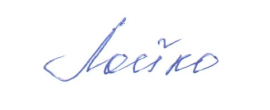 Лойко